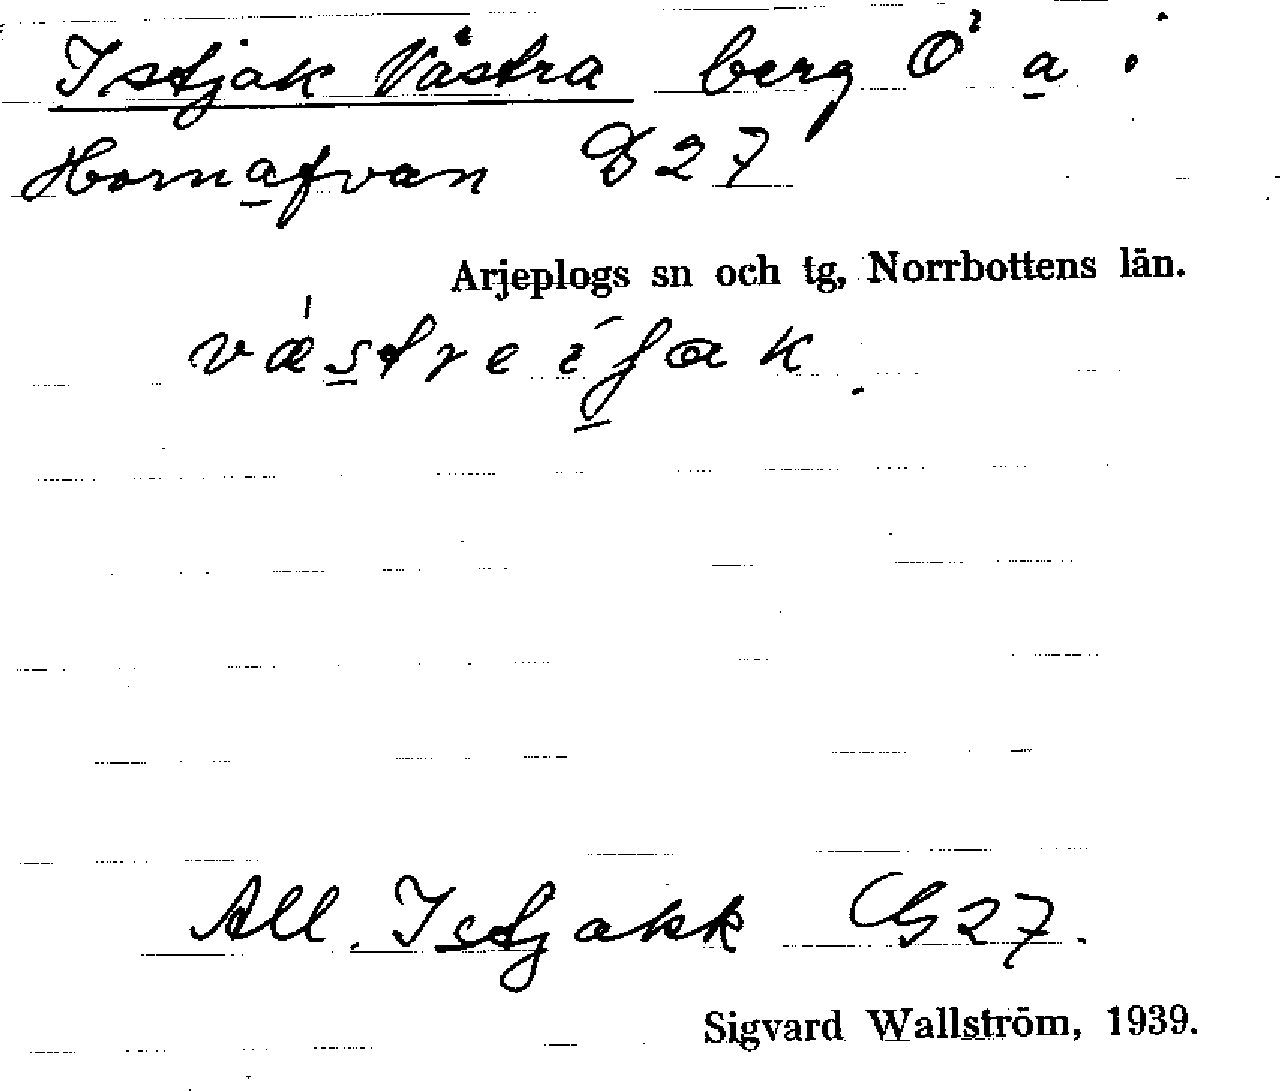 Istjak Västra berg Ö a i
Hornafvan D27
Arjeplogs sn och tg, Norrbottens län.
All. Istjakk G27.
Sigvard Wallström, 1939.